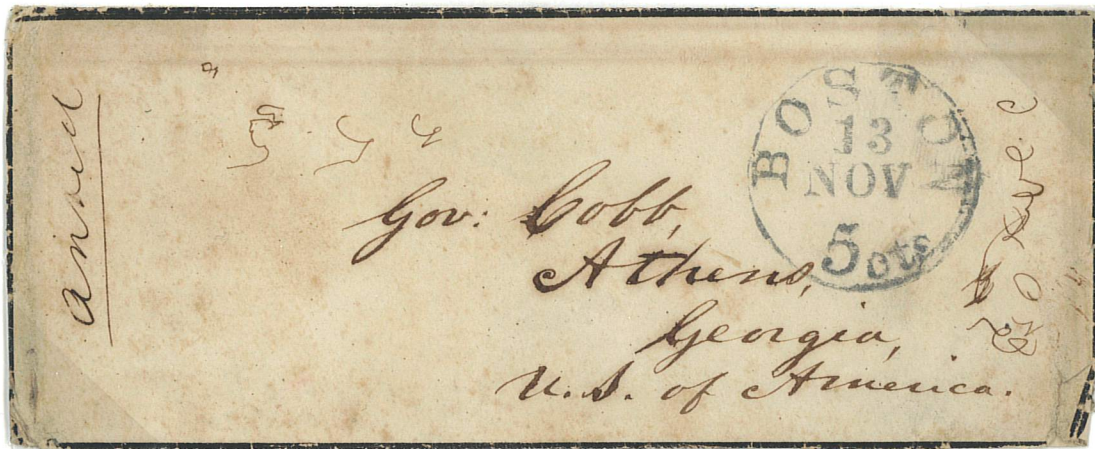 BOSTON
13
NOV
5 cts
Gov: Cobb,
Athens,
Georgia,
U.S. of America.